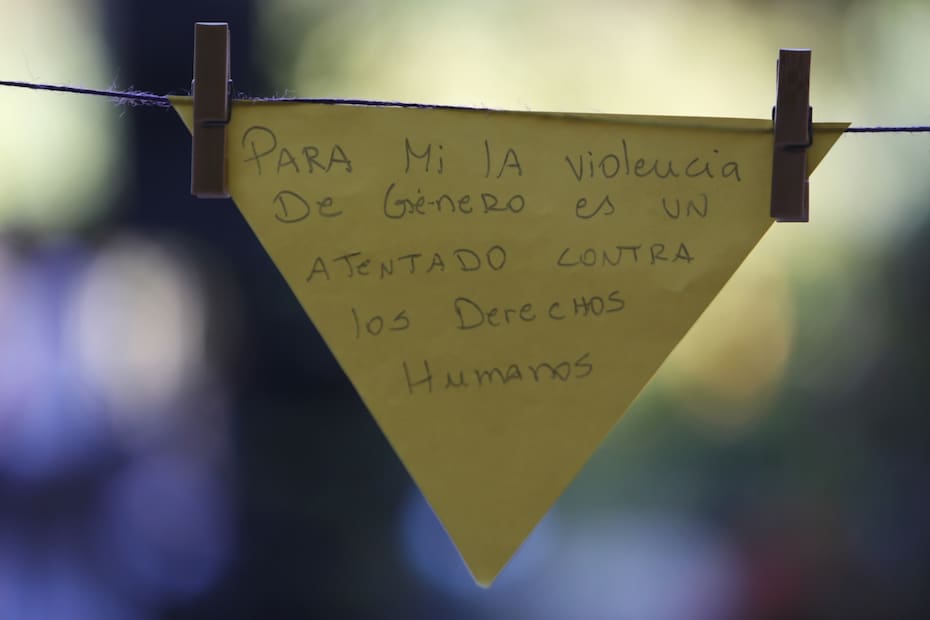 PARA Mi lA violencia
De Género es un
ATENTADO CONTRA
los Derechos
Humanos